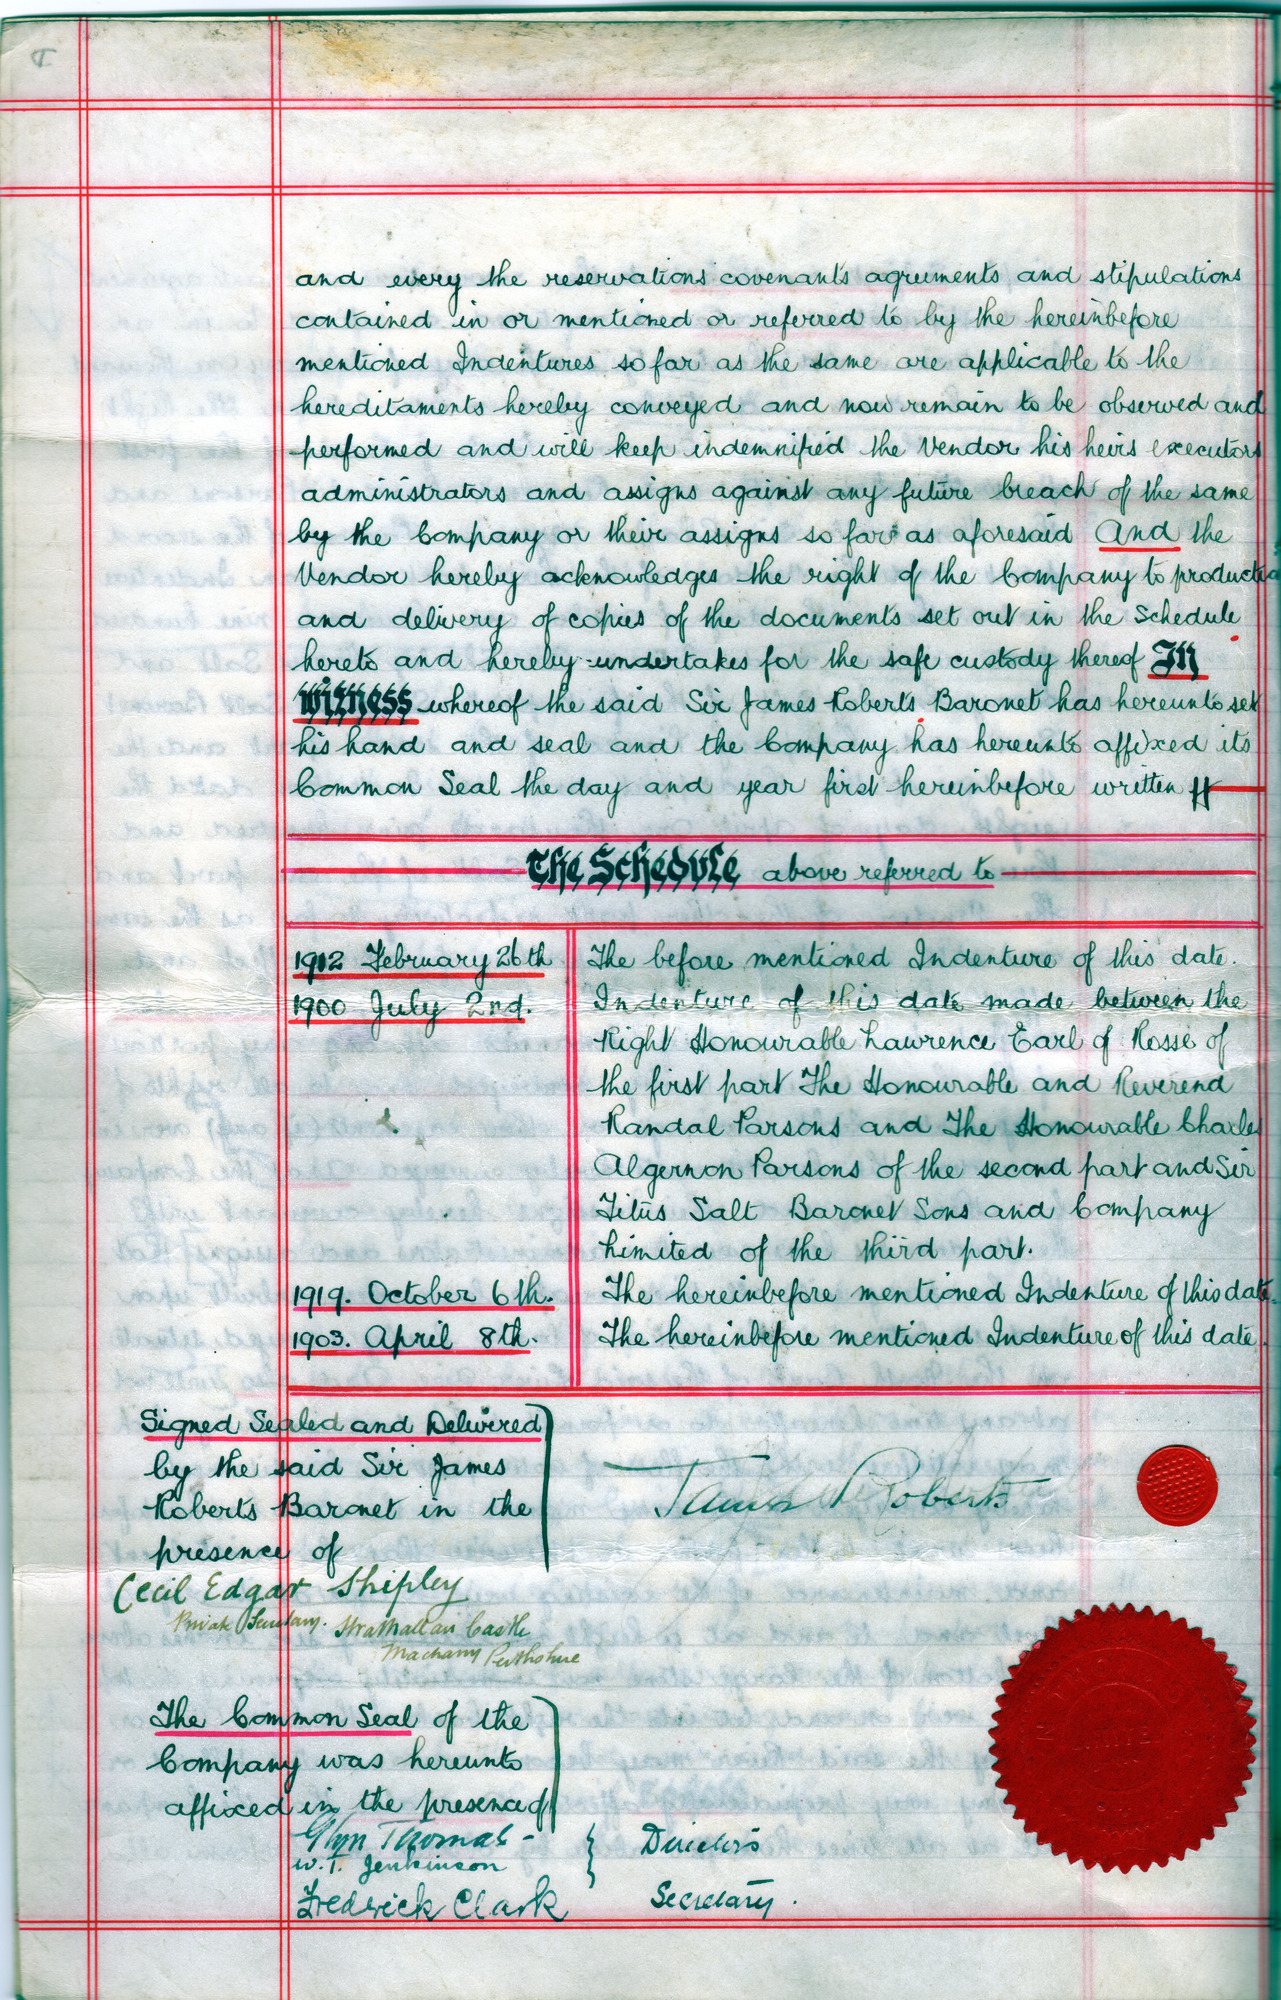 and every the reservations covenants agreements and stipulations
contained in or mentioned or referred to by the hereinbefore
mentioned Indentures so far as the same are applicable to the
hereditaments hereby conveyed and now remain to be observed and
performed and will keep indemnified the Vendor his heirs executors
administrators and assigns against any future breach of the same
by the Company or their assigns so far as aforesaid And the
Vendor hereby acknowledges the right of the Company to production
and delivery of copies of the documents set out in the Schedule
hereto and hereby undertakes for the safe custody thereof In
Witness whereof the said Sir James Roberts Baronet has hereunto set
his hand and seal and the Company has hereunto affixed its
Common Seal the day and year first hereinbefore written
The Schedule above referred to
1912 February 26th The before mentioned Indenture of this date.
1900 July 2nd. Indenture of this date made between the
Right Honourable Lawrence Earl of Rosse of
the first part The Honourable and Reverend
Randal Parsons and The Honourable Charles
Algernon Parsons of the second part and Sir
Titus Salt Baronet Sons and Company
Limited of the third part.
1919. October 6th. The hereinbefore mentioned Indenture of this date.
1903. April 8th. The hereinbefore mentioned Indenture of this date.
Signed Sealed and Delivered
by the said Sir James
Roberts Baronet in the
presence of
James Roberts
Cecil Edgar Shipley
Private Secretary. Strathallan Castle
Machany Perthshire
The Common Seal of the
Company was hereunto
affixed in the presence of
Glyn Thomas - Directors
W. T. Jenkinson
Fredrick Clark Secretary.